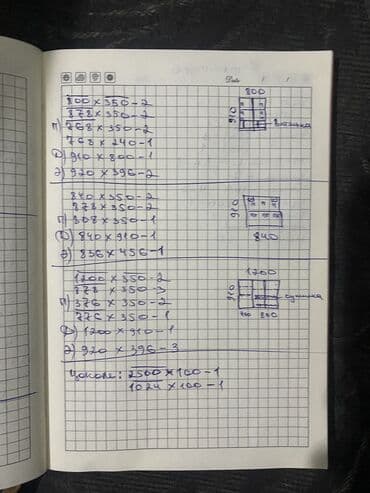 Date / /
800 × 350 - 2
878 × 350 - 2
П) 768 × 350 - 2
768 × 240 - 1
Ф) 910 × 800 - 1
Э) 920 × 396 - 2
800
910
840 × 350 - 2
878 × 350 - 2
П) 808 × 350 - 1
Ф) 840 × 910 - 1
Э) 836 × 456 - 1
910
840
1200 × 350 - 2
878 × 350 - 3
П) 376 × 350 - 2
776 × 350 - 1
Ф) 1200 × 910 - 1
Э) 920 × 396 - 3
1200
910
сушка
400 800
Цоколь: 2500 × 100 - 1
1024 × 100 - 1